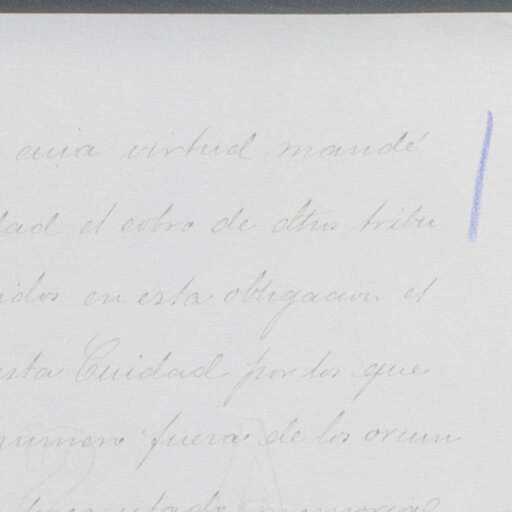 cuia virtud mandé
dad el cobro de dhos tribu
idos en esta obligacion el
esta Cuidad por los que
fuera de los